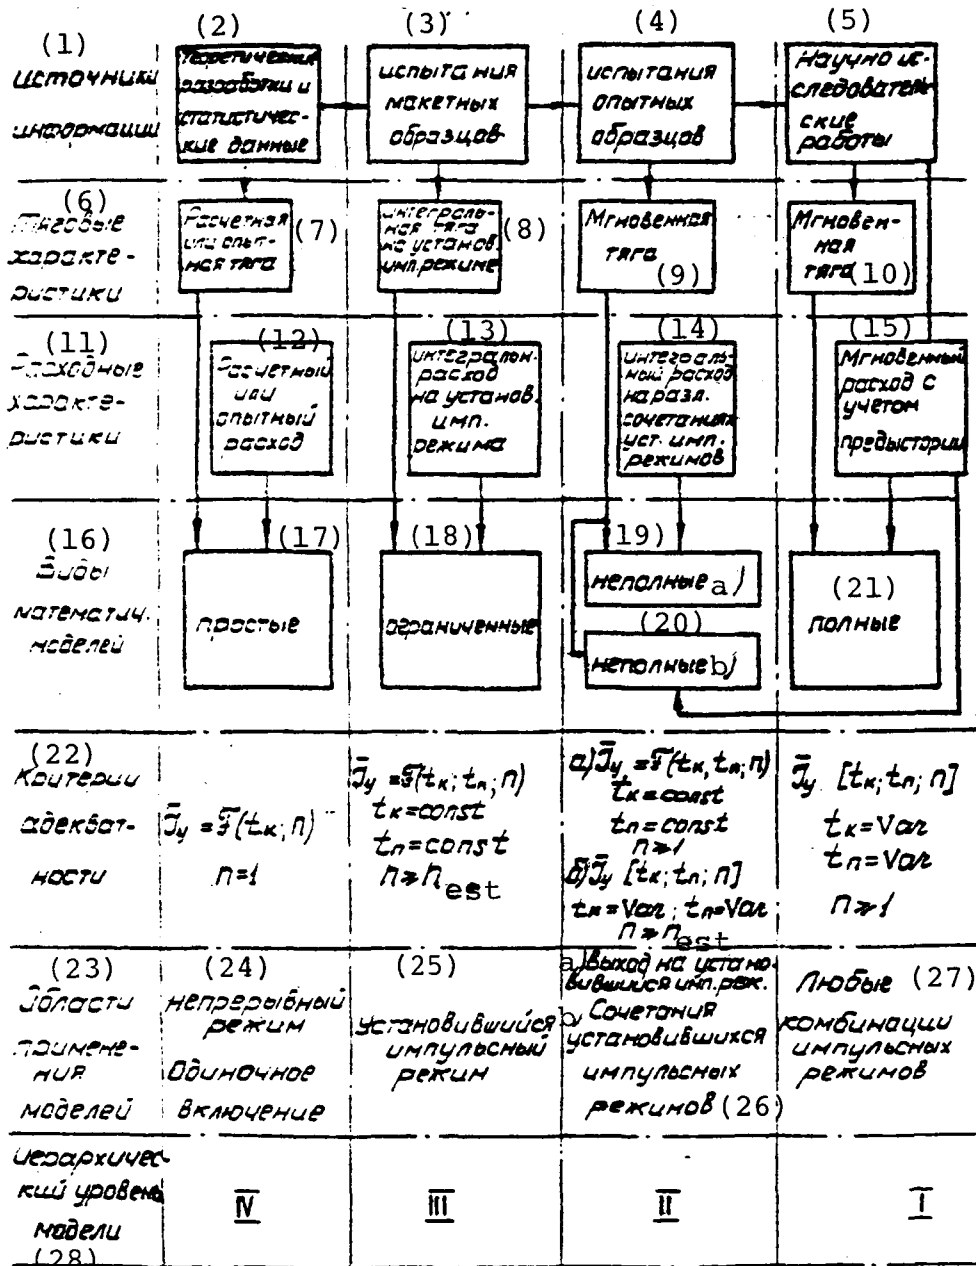 (1)
источники
информации
(2)
Теоретические
разработки и
статистичес-
кие данные
(3)
испытания
макетных
образцов
(4)
испытания
опытных
образцов
(5)
Научно ис-
следователь
ские
работы
(6)
Тяговые
характе-
ристики
Расчетная
или опыт-
ная тяга
(7)
интеграль-
ная тяга
на установ.
имп. режиме
(8)
Мгновенная
тяга
(9)
Мгновен-
ная
тяга (10)
(11)
Расходные
характе-
ристики
(12)
Расчетный
или
опытный
расход
(13)
интегральн.
расход
на установ.
имп.
режима
(14)
интеграль-
ный расход
на разл.
сочетаниях
уст. имп.
режимов
(15)
Мгновенный
расход с
учетом
предыстории
(16)
Виды
математич.
моделей
(17)
простые
(18)
ограниченные
(19)
неполные a)
(20)
неполные b)
(21)
полные
(22)
Критерии
адекват-
ности
J̄у = F(tк; n)
n=1
J̄у = F(tк; tп; n)
tк=const
tп=const
n≥n est
а) J̄у = F(tк, tп; n)
tк=const
tп=const
n≥1
б) J̄у [tк; tп; n]
tк=Var; tп=Var
n≥n est
J̄у [tк; tп; n]
tк=Var
tп=Var
n≥1
(23)
Области
примене-
ния
моделей
(24)
непрерывный
режим
Одиночное
включение
(25)
Установившийся
импульсный
режим
a) Выход на устано-
вившийся имп. реж.
b) Сочетания
установившихся
импульсных
режимов (26)
Любые (27)
комбинации
импульсных
режимов
иерархичес-
кий уровень
модели
(28)
IV
III
II
I